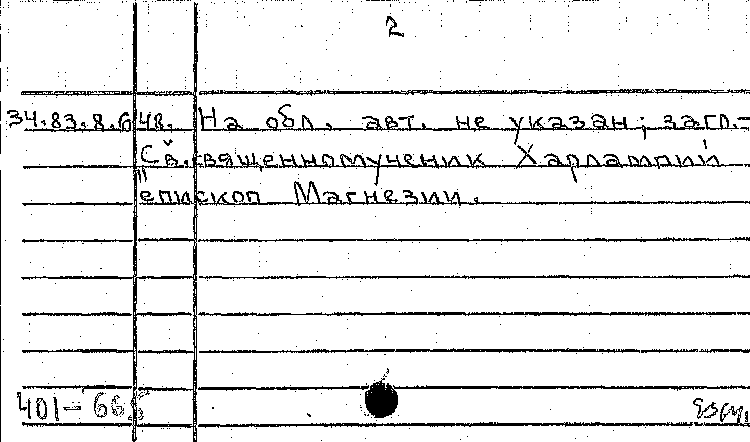 2
34.83.8.648. На обл. авт. не указан; загл.-
"Св. священномученик Харлампий
епископ Магнезии.
401-665